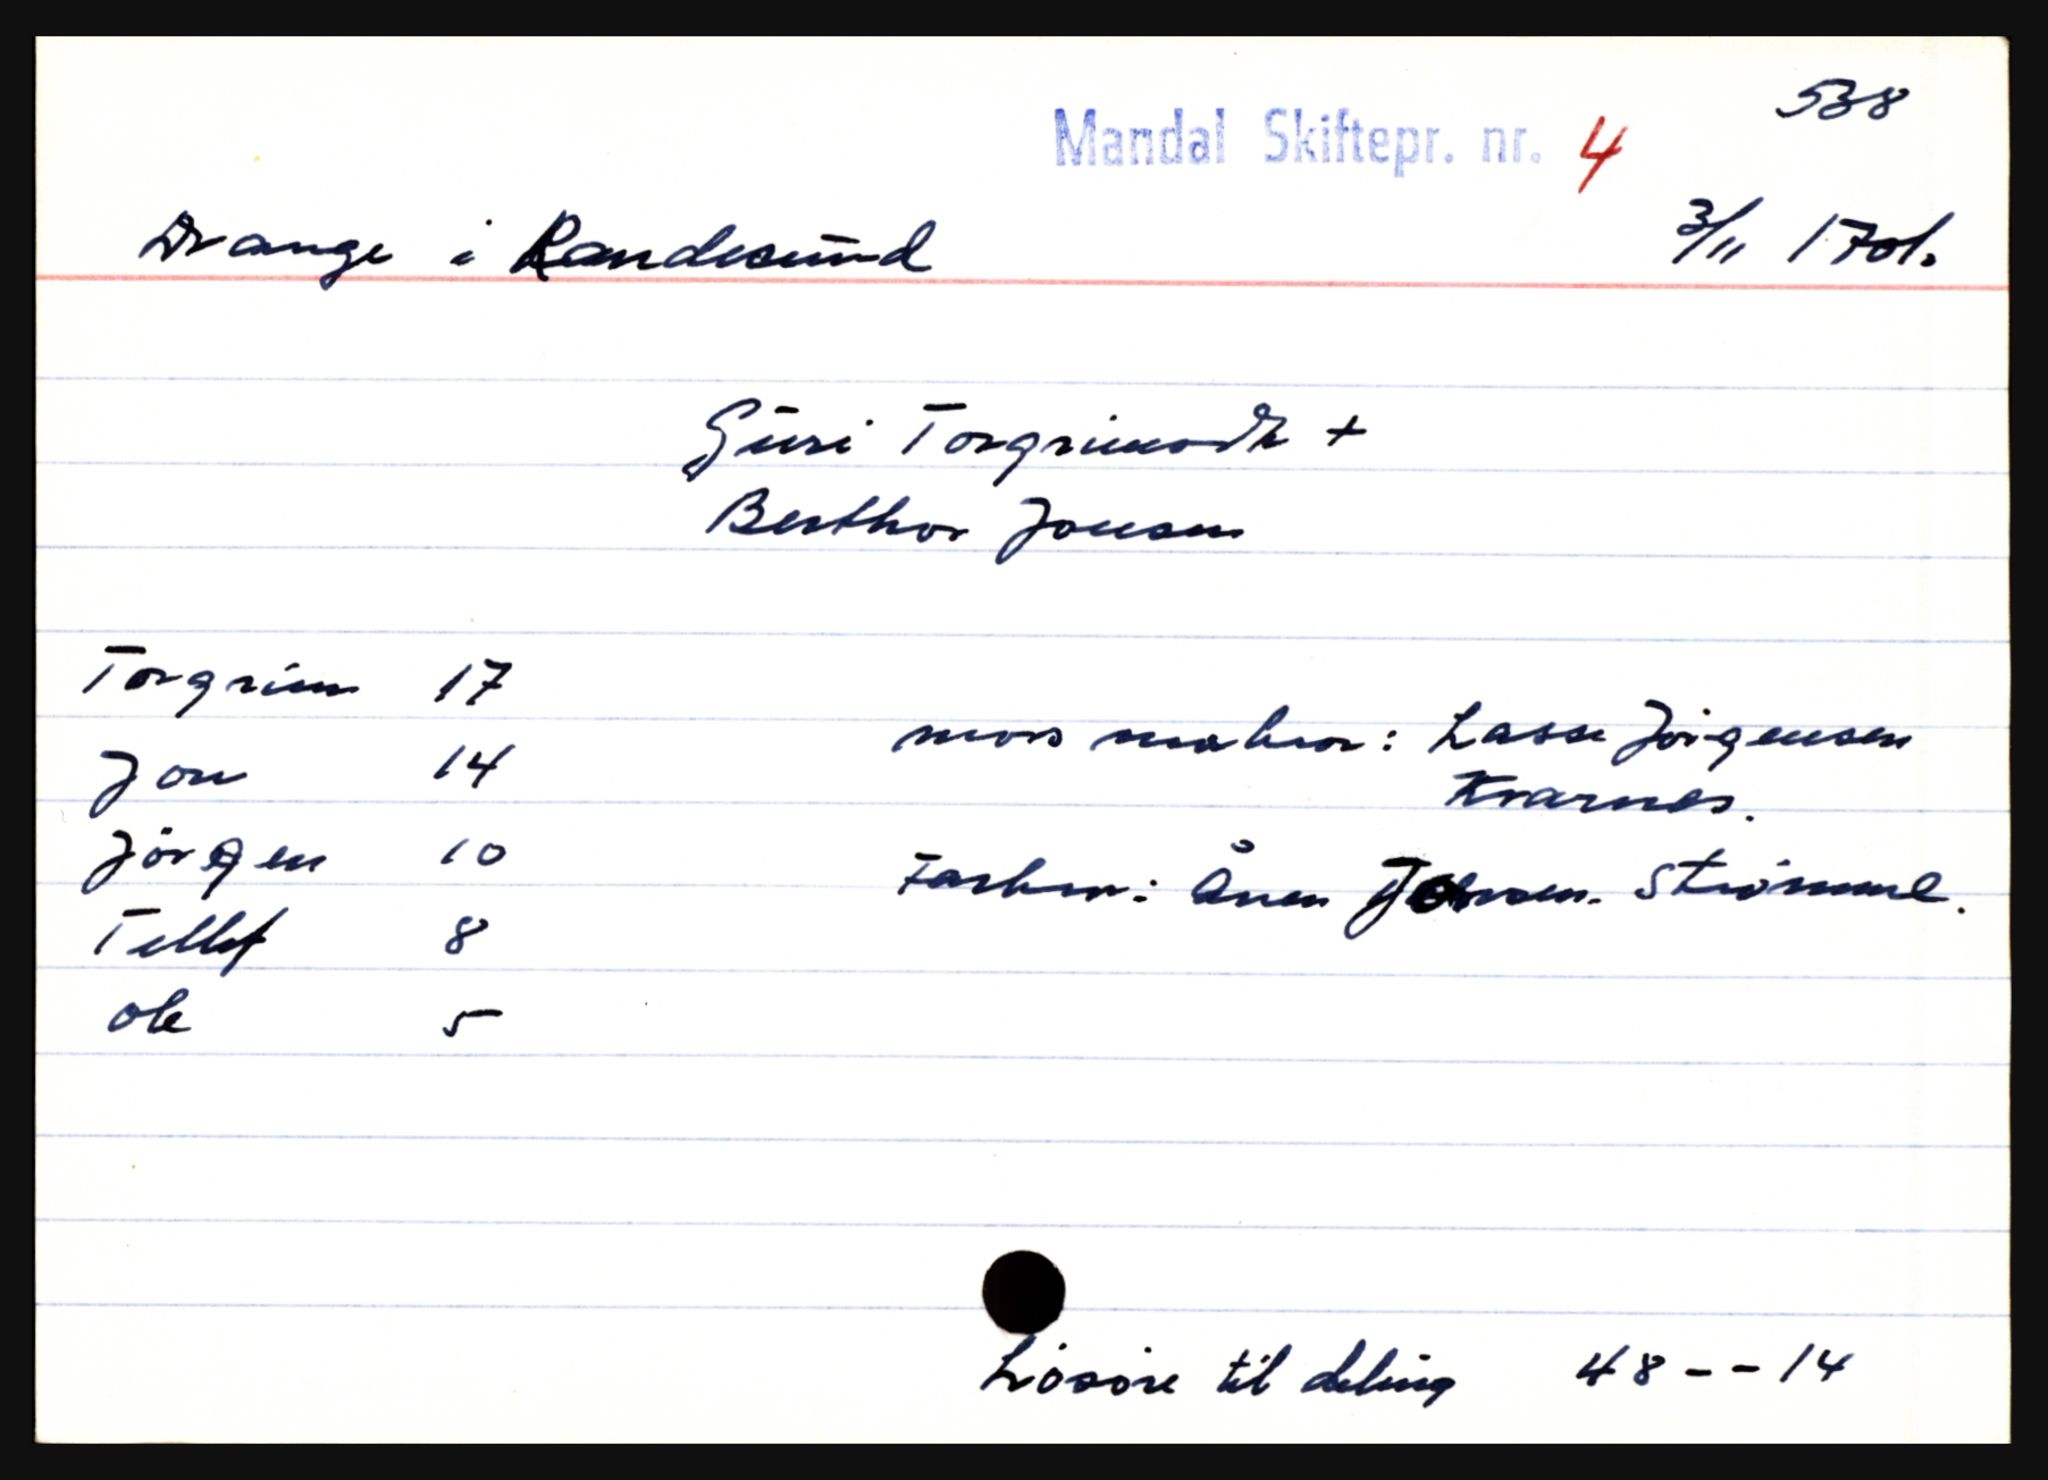 538
Mandal Skiftepr. nr. 4
Drange i Randesund 3/11 1701.
Guri Torgrimsdtr +
Berthor Jonsen
Torgrim 17
mors : Lasse Jørgensen
Jon 14
Kvarnes.
Jörgen 10
Farbror: Ånen Jonsen. Strømme.
Tellef 8
Ole 5
Løsøre til deling 48 - - 14